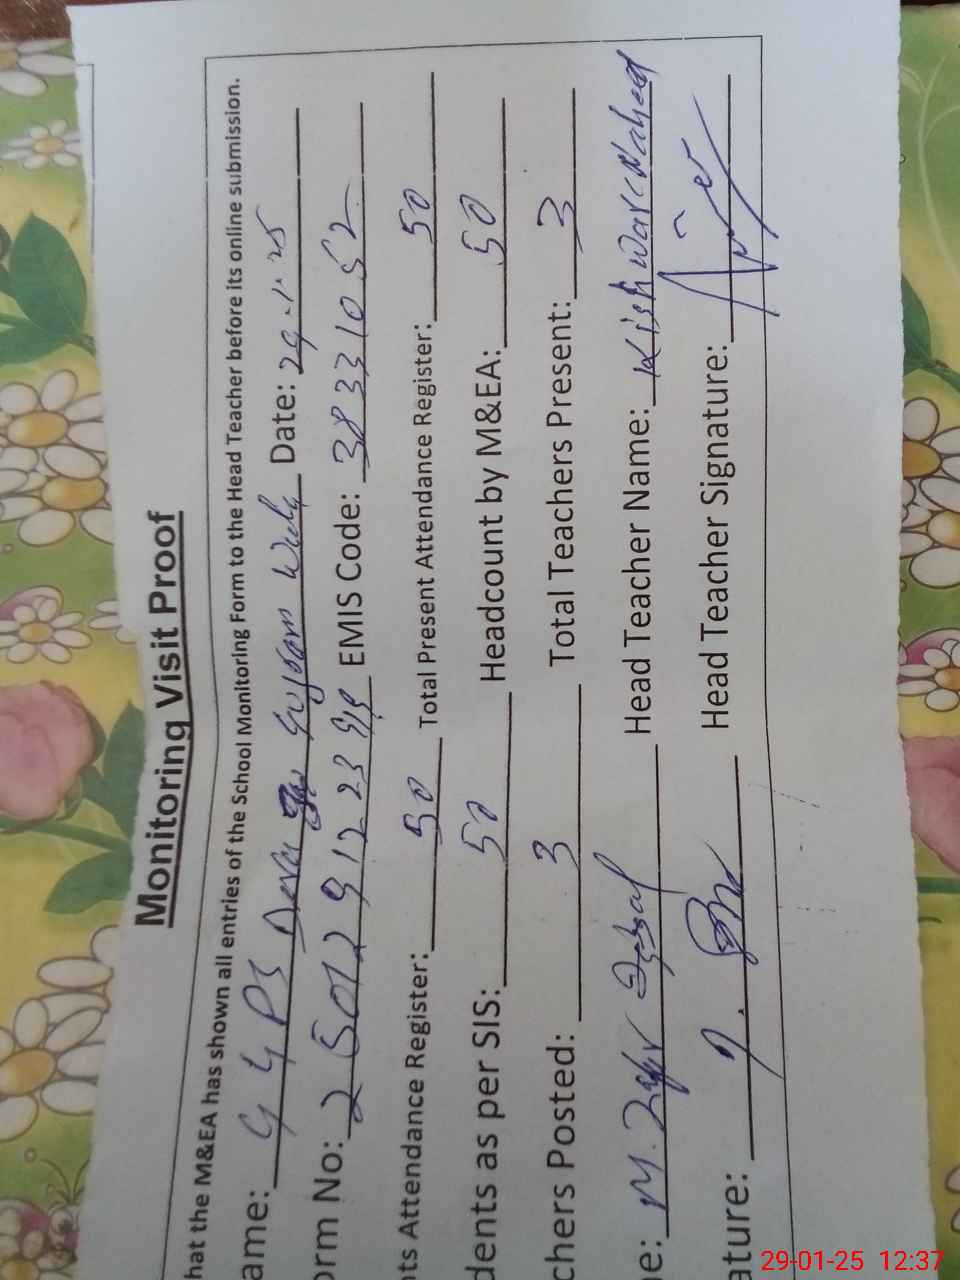 Monitoring Visit Proof
hat the M&EA has shown all entries of the School Monitoring Form to the Head Teacher before its online submission.
ame: GGPS Date: 29-1-25
orm No: EMIS Code: 38331052
nts Attendance Register: 50 Total Present Attendance Register: 50
dents as per SIS: 50 Headcount by M&EA: 50
chers Posted: 3 Total Teachers Present: 3
e: M. Zafar Iqbal Head Teacher Name: Kishwar Naheed
ature: Head Teacher Signature:
29-01-25 12:37